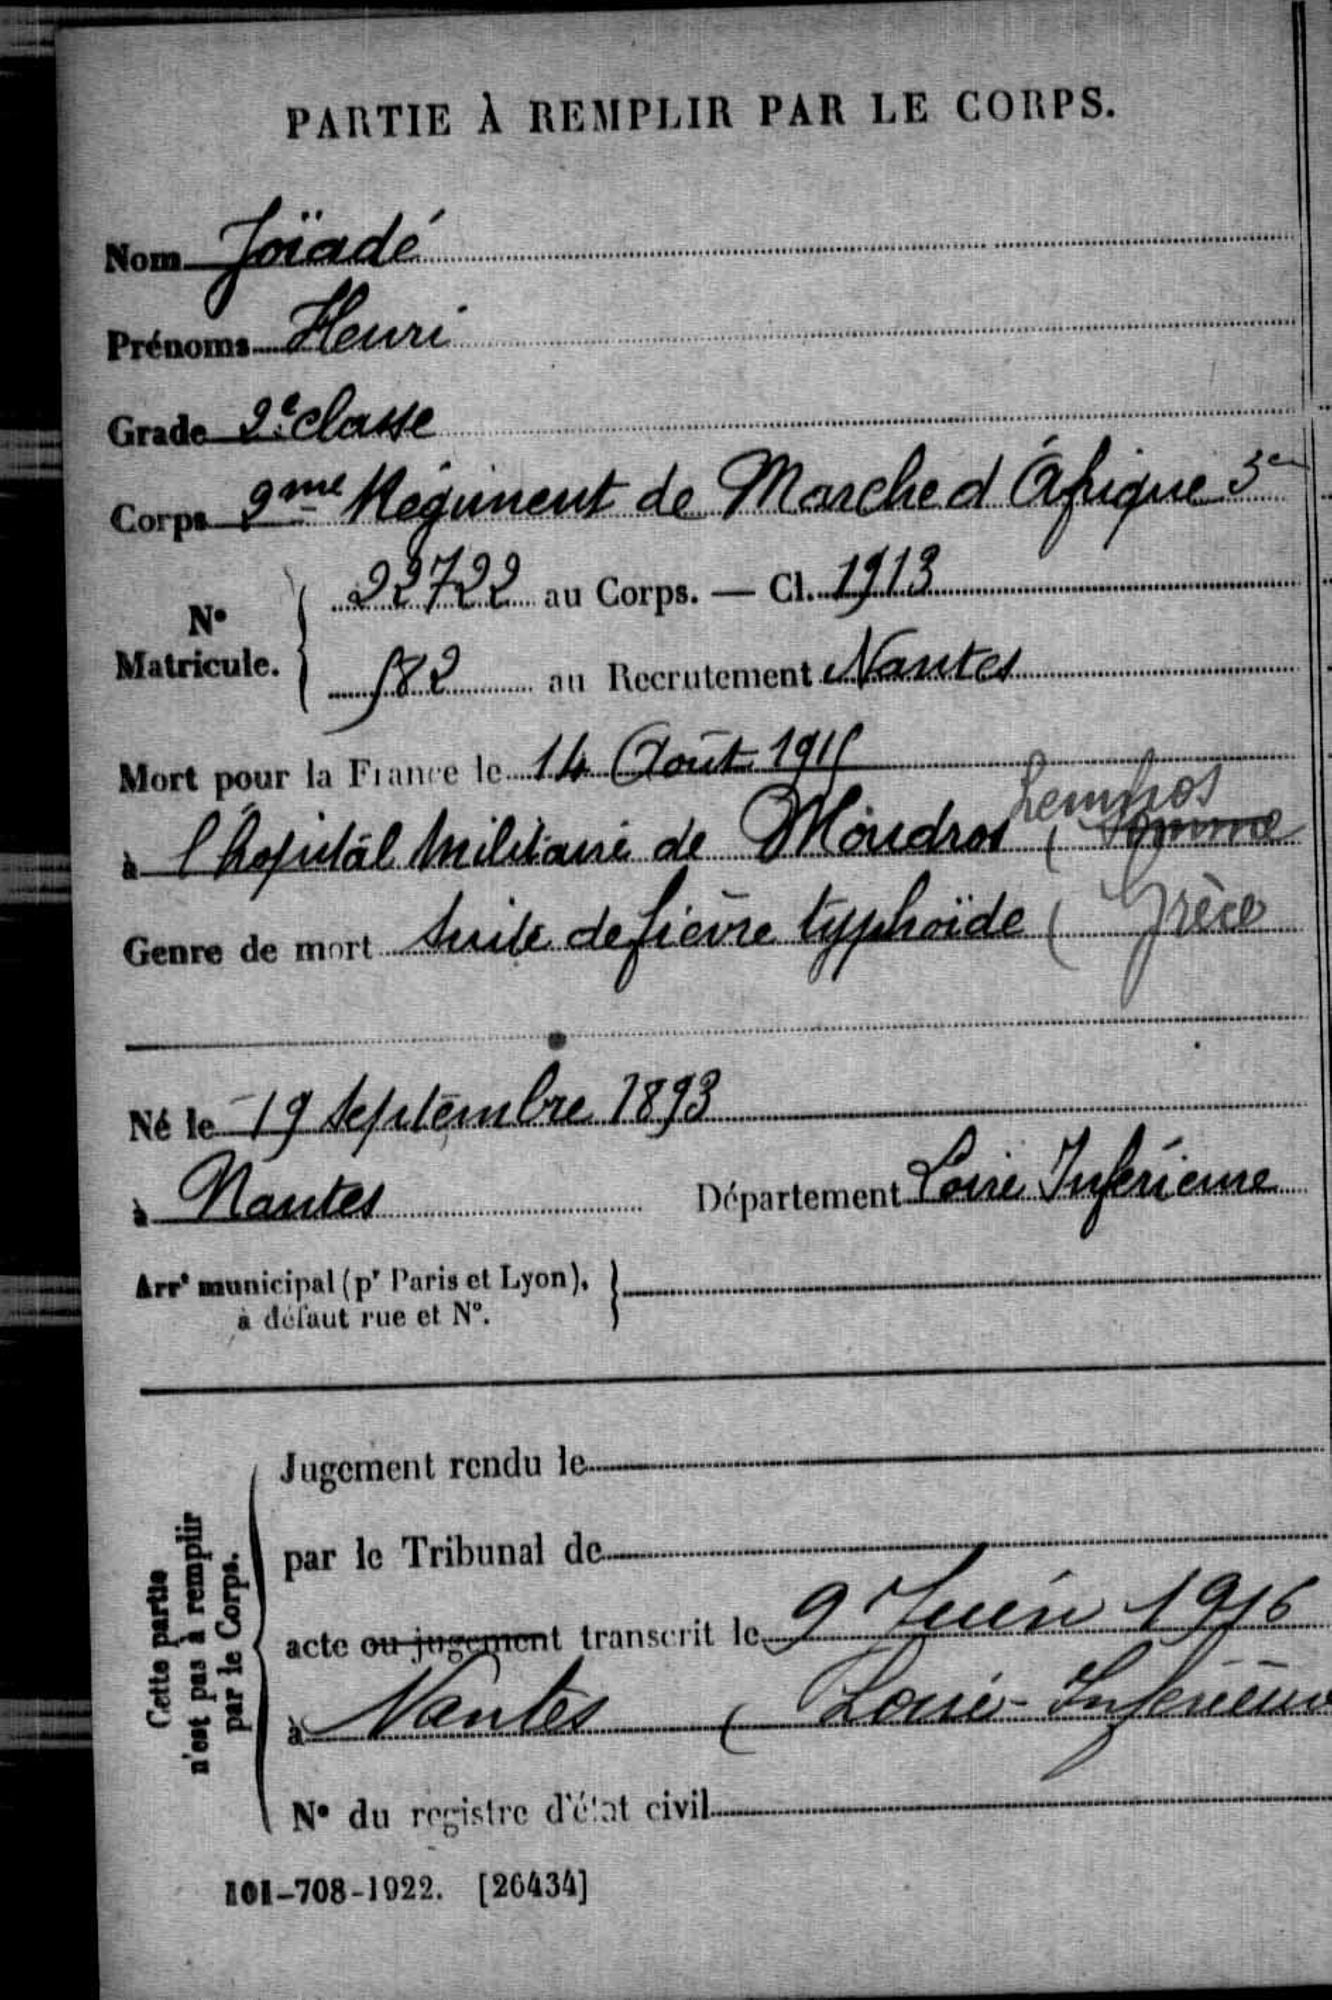 PARTIE À REMPLIR PAR LE CORPS.
Nom Joïadé
Prénoms Henri
Grade 2e classe
Corps 2me Régiment de Marche d'Afrique 3e
No Matricule. 22722 au Corps. — Cl. 1913
582 au Recrutement Nantes
Mort pour la France le 14 Août 1915
Lemnos
à l'hopital Militaire de Moudros (
Genre de mort suite de fièvre typhoïde ( Grèce
Né le 19 septembre 1893
à Nantes Département Loire Inférieure
Arrt municipal (pr Paris et Lyon),
à défaut rue et No.
Cette partie
n'est pas à remplir
par le Corps.
Jugement rendu le
par le Tribunal de
acte ou jugement transcrit le 9 Juin 1916
à Nantes ( Loire-Inférieure
No du registre d'état civil
101-708-1922. [26434]